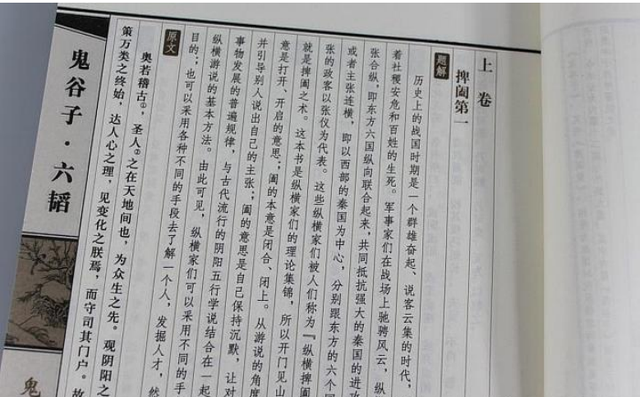 上 卷
捭阖第一
题解
历史上的战国时期是一个群雄奋起、说客云集的时代，
着社稷安危和百姓的生死。军事家们在战场上驰骋风云，纵
张合纵，即东方六国纵向联合起来，共同抵抗强大的秦国的进攻
或者主张连横，即以西部的秦国为中心，分别跟东方的六个国
张的政客以张仪为代表。这些纵横家们被人们称为“纵横捭阖
就是捭阖之术。这本书是纵横家们的理论集锦，所以开门见山
意是打开、开启的意思；阖的本意是闭合、闭上。从游说的角度
并引导别人说出自己的主张；阖的意思是自己保持沉默，让对
事物发展的普遍规律，与古代流行的阴阳五行学说结合在一起
纵横游说的基本方法。由此可见，纵横家们可以采用不同的手
目的；也可以采用各种不同的手段去了解一个人，发掘人才，然
原文
奥若稽古①，圣人②之在天地间也，为众生之先。观阴阳之
策万类之终始，达人心之理，见变化之朕焉，而守司其门户。故
鬼谷子·六韬
鬼